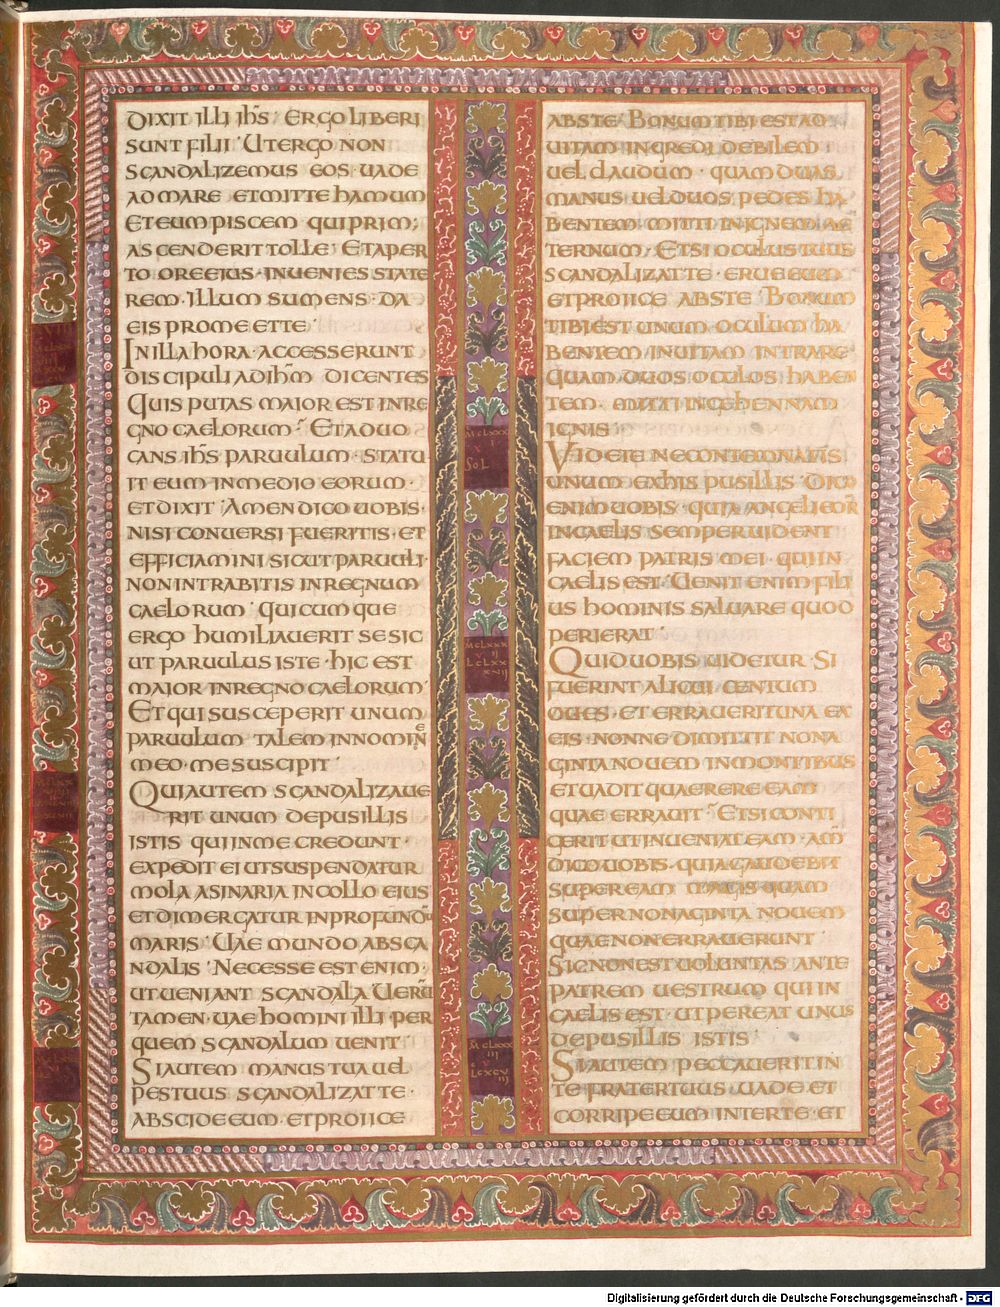 DIXIT ILLI IHS · ERGO LIBERI
SUNT FILII · UT ERGO NON
SCANDALIZEMUS EOS · UADE
AD MARE ET MITTE HAMUM
ET EUM PISCEM QUI PRIM;
ASCENDERIT TOLLE · ET APER
TO ORE EIUS · INUENIES STATE
REM · ILLUM SUMENS · DA
EIS PRO ME ET TE ·
IN ILLA HORA · ACCESSERUNT
DISCIPULI AD IHM DICENTES
QUIS PUTAS MAIOR EST IN RE
GNO CAELORUM · ET ADUO
CANS IHS PARUULUM · STATU
IT EUM IN MEDIO EORUM ·
ET DIXIT · AMEN DICO UOBIS ·
NISI CONUERSI FUERITIS · ET
EFFICIAMINI SICUT PARUULI ·
NON INTRABITIS IN REGNUM
CAELORUM · QUICUMQUE
ERGO HUMILIAUERIT SE SIC
UT PARUULUS ISTE · HIC EST
MAIOR IN REGNO CAELORUM ·
ET QUI SUSCEPERIT UNUM
PARUULUM TALEM IN NOMINE
MEO · ME SUSCIPIT ·
QUI AUTEM SCANDALIZAUE
RIT UNUM DE PUSILLIS
ISTIS QUI IN ME CREDUNT ·
EXPEDIT EI UT SUSPENDATUR
MOLA ASINARIA IN COLLO EIUS
ET DIMERGATUR IN PROFUNDŪ
MARIS · UAE MUNDO AB SCA
NDALIS · NECESSE EST ENIM ·
UT UENIANT SCANDALA UERŪ
TAMEN · UAE HOMINI ILLI · PER
QUEM SCANDALUM UENIT ·
SI AUTEM MANUS TUA UEL
PES TUUS SCANDALIZAT TE ·
ABSCIDE EUM · ET PROIICE
ABS TE · BONUM TIBI EST AD
UITAM INGREDI DEBILEM
UEL CLAUDUM · QUAM DUAS
MANUS UEL DUOS PEDES HA
BENTEM · MITTI IN IGNEM AE
TERNUM · ET SI OCULUS TUUS
SCANDALIZAT TE · ERUE EUM
ET PROIICE ABS TE · BONUM
TIBI EST UNUM OCULUM HA
BENTEM IN UITAM INTRARE ·
QUAM DUOS OCULOS HABEN
TEM · MITTI IN GEHENNAM
IGNIS ·
VIDETE NE CONTEMNATIS
UNUM EX HIS PUSILLIS · DICO
ENIM UOBIS · QUIA ANGELI EOR̄
IN CAELIS SEMPER UIDENT
FACIEM PATRIS MEI · QUI IN
CAELIS EST · UENIT ENIM FILI
US HOMINIS SALUARE QUOD
PERIERAT ·
QUID UOBIS UIDETUR · SI
FUERINT ALICUI CENTUM
OUES · ET ERRAUERIT UNA EX
EIS · NONNE DIMITTIT NONA
GINTA NOUEM IN MONTIBUS
ET UADIT QUAERERE EAM
QUAE ERRAUIT · ET SI CONTI
GERIT UT INUENIAT EAM · AM̄
DICO UOBIS · QUIA GAUDEBIT
SUPER EAM MAGIS QUAM
SUPER NONAGINTA NOUEM
QUAE NON ERRAUERUNT ·
SIC NON EST UOLUNTAS ANTE
PATREM UESTRUM QUI IN
CAELIS EST · UT PEREAT UNUS
DE PUSILLIS ISTIS ·
SI AUTEM PECCAUERIT IN
TE FRATER TUUS · UADE ET
CORRIPE EUM INTER TE · ET
Digitalisierung gefördert durch die Deutsche Forschungsgemeinschaft - DFG